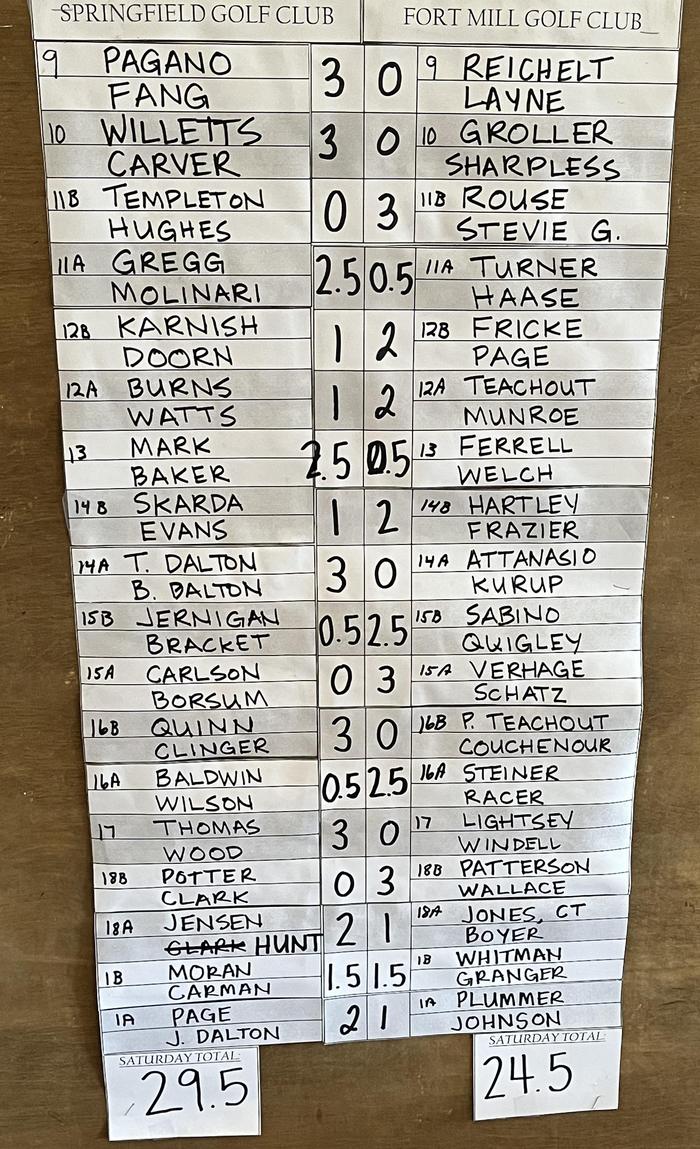 SPRINGFIELD GOLF CLUB FORT MILL GOLF CLUB
9 PAGANO 3 0 9 REICHELT
FANG LAYNE
10 WILLETTS 3 0 10 GROLLER
CARVER SHARPLESS
11B TEMPLETON 0 3 11B ROUSE
HUGHES STEVIE G.
11A GREGG 2.5 0.5 11A TURNER
MOLINARI HAASE
12B KARNISH 1 2 12B FRICKE
DOORN PAGE
12A BURNS 1 2 12A TEACHOUT
WATTS MUNROE
13 MARK 2.5 0.5 13 FERRELL
BAKER WELCH
14B SKARDA 1 2 14B HARTLEY
EVANS FRAZIER
14A T. DALTON 3 0 14A ATTANASIO
B. DALTON KURUP
15B JERNIGAN 0.5 2.5 15B SABINO
BRACKET QUIGLEY
15A CARLSON 0 3 15A VERHAGE
BORSUM SCHATZ
16B QUINN 3 0 16B P. TEACHOUT
CLINGER COUCHENOUR
16A BALDWIN 0.5 2.5 16A STEINER
WILSON RACER
17 THOMAS 3 0 17 LIGHTSEY
WOOD WINDELL
18B POTTER 0 3 18B PATTERSON
CLARK WALLACE
18A JENSEN 2 1 18A JONES, CT
CLARK HUNT BOYER
1B MORAN 1.5 1.5 1B WHITMAN
CARMAN GRANGER
1A PAGE 2 1 1A PLUMMER
J. DALTON JOHNSON
SATURDAY TOTAL: SATURDAY TOTAL:
29.5 24.5